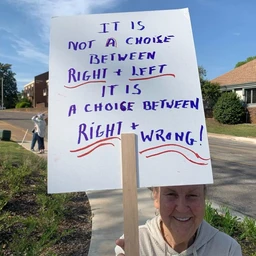 IT IS
NOT A CHOISE
BETWEEN
RIGHT + LEFT
IT IS
A CHOICE BETWEEN
RIGHT +
WRONG!